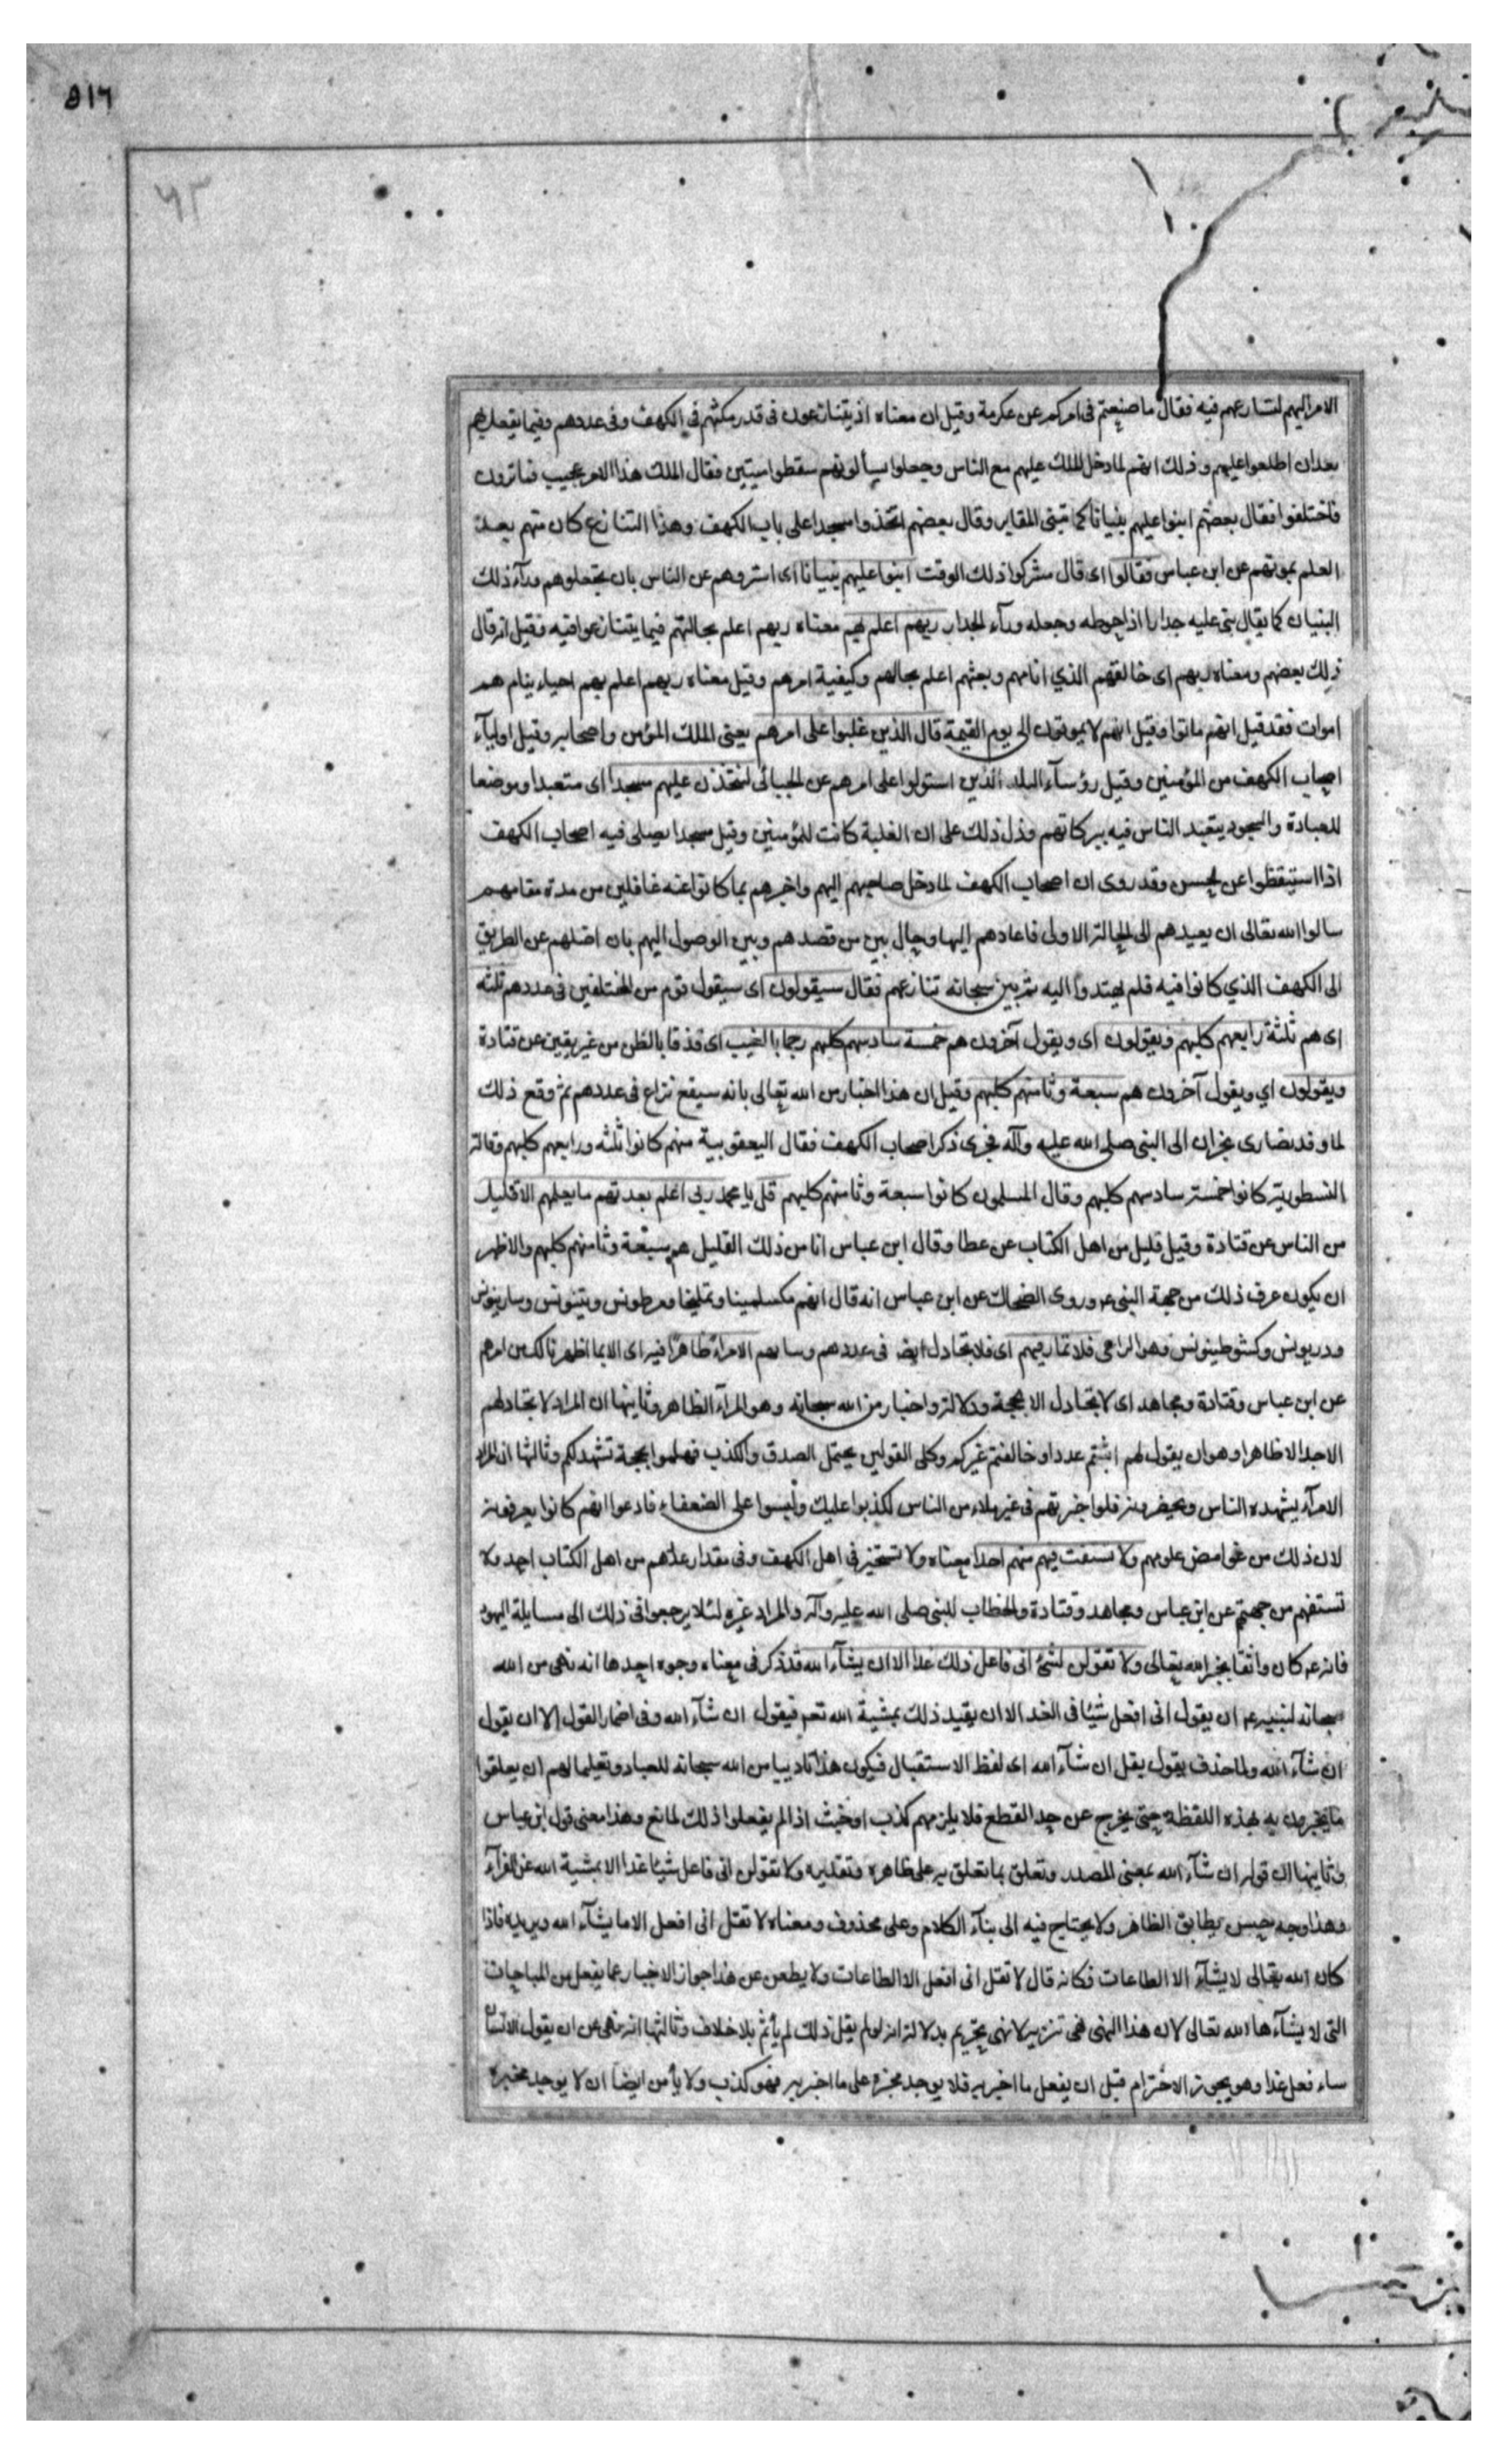 ٥١٦
٦٣
الامر اليهم لتسارعهم فيه فقال ما صنعتم فى امركم عن عكرمة وقيل ان معناه اذ يتنازعون فى قدر مكثهم في الكهف وفى عددهم وفيما يفعل بهم
بعد ان اطلعوا عليهم وذلك انهم لما دخل الملك عليهم مع الناس وجعلوا يسألونهم سقطوا ميتين فقال الملك هذا الامر عجيب فما ترون
فاختلفوا فقال بعضهم ابنوا عليهم بنيانا كما تبنى المقابر وقال بعضهم اتخذوا مسجدا على باب الكهف وهذا التنازع كان منهم بعد
العلم بموتهم عن ابن عباس فقالوا اى قال مشركوا ذلك الوقت ابنوا عليهم بنيانا اى استروهم عن الناس بان تجعلوهم ورآء ذلك
البنيان كما يقال بنى عليه جدارا اذا حوطه وجعله ورآء الجدار ربهم اعلم بهم معناه ربهم اعلم بحالهم فيما يتنازعوا فيه فقيل انه قال
ذلك بعضهم ومعناه ربهم اى خالقهم الذي انامهم وبعثهم اعلم بحالهم وكيفية امرهم وقيل معناه ربهم اعلم بهم احياء نيام هم
اموات فقد قيل انهم ماتوا وقيل انهم لا يموتون الى يوم القيمة قال الذين غلبوا على امرهم يعنى الملك المؤمن واصحابه وقيل اوليآء
اصحاب الكهف من المؤمنين وقيل رؤسآء البلد الذين استولوا على امرهم عن الجبائى لنتخذن عليهم مسجدا اى متعبدا وموضعا
للعبادة والسجود يتعبد الناس فيه ببركاتهم ودل ذلك على ان الغلبة كانت للمؤمنين وقيل مسجدا يصلى فيه اصحاب الكهف
اذا استيقظوا عن الحسن وقد روى ان اصحاب الكهف لما دخل صاحبهم اليهم واخبرهم بما كانوا عنه غافلين من مدة مقامهم
سالوا الله تعالى ان يعيدهم الى الحالة الاولى فاعادهم اليها وحال بين من قصدهم وبين الوصول اليهم بان اضلهم عن الطريق
الى الكهف الذي كانوا فيه فلم يهتدوا اليه ثم بين سبحانه تنازعهم فقال سيقولون اى سيقول قوم من المختلفين فى عددهم ثلثه
اى هم ثلثة رابعهم كلبهم ويقولون اى ويقول آخرون هم خمسة سادسهم كلبهم رجما بالغيب اى قذفا بالظن من غير يقين عن قتادة
ويقولون اي ويقول آخرون هم سبعة وثامنهم كلبهم وقيل ان هذا اخبار من الله تعالى بانه سيقع نزاع فى عددهم ثم وقع ذلك
لما وفد نصارى نجران الى النبى صلى الله عليه وآله فجرى ذكر اصحاب الكهف فقال اليعقوبية منهم كانوا ثلثه ورابعهم كلبهم وقالة
النسطورية كانوا خمسة سادسهم كلبهم وقال المسلمون كانوا سبعة وثامنهم كلبهم قل يا محمد ربى اعلم بعدتهم ما يعلمهم الا قليل
من الناس عن قتادة وقيل قليل من اهل الكتاب عن عطا وقال ابن عباس انا من ذلك القليل هم سبعة وثامنهم كلبهم والاظهر
ان يكون عرف ذلك من جهة النبى ع وروى الضحاك عن ابن عباس انه قال انهم مكسلمينا وتمليخا ومرطونس وينينونس وسارينونس
ودربونس وكشوطبنونس وهو الراعى فلا تمار فيهم اى فلا تجادل ايضا فى عددهم الا مراء ظاهرا فيه اى الا بما اظهرنا لك من امرهم
عن ابن عباس وقتادة ومجاهد اى لا تجادل الا بحجة ودلالة واخبار من الله سبحانه وهو المرآء الظاهر وثانيها ان المراد لا تجادلهم
الا جدالا ظاهرا وهو ان يقول لهم اثبتم عددا وخالفتم غيركم وكلى القولين يحتمل الصدق والكذب فهلموا بحجة تشهد لكم وثالثها ان المراد
الا مرآء يشهده الناس ويحضرونه فلو اخبرتهم فى غير ملاء من الناس لكذبوا عليك ولبسوا على الضعفاء فادعوا انهم كانوا يعرفونه
لان ذلك من غوامض علومهم ولا تستفت فيهم منهم احدا معناه ولا تستخبر فى اهل الكهف وفى مقدار عددهم من اهل الكتاب احد ولا
تستفهم من جهتهم عن ابن عباس ومجاهد وقتادة والخطاب للنبى صلى الله عليه وآله والمراد غيره لئلا يرجعوا فى ذلك الى مسايلة اليهود
فانه ع كان واثقا بخبر الله تعالى ولا تقولن لشئ انى فاعل ذلك غدا الا ان يشآء الله قد ذكر فى معناه وجوه احدها انه نهى من الله
سبحانه لنبيه ع ان يقول انى افعل شيئا فى الغد الا ان يقيد ذلك بمشية الله تعم فيقول ان شآء الله وفى اضمار القول الا ان يقول
ان شآء الله ولما حذف يقول يقل ان شآء الله اى لفظ الاستقبال فيكون هذا تاديبا من الله سبحانه للعباد وتعليما لهم ان يعلقوا
ما يخبرون به بهذه اللفظة حتى يخرج عن حد القطع فلا يلزمهم كذب او حنث اذا لم يفعلوا ذلك لمانع وهذا معنى قول ابن عباس
وثانيها ان قوله ان شآء الله بمعنى المصدر وتعلق بما تعلق به على ظاهره وتقديره ولا تقولن انى فاعل شيئا غدا الا بمشية الله عن الفرآء
وهذا وجه حسن يطابق الظاهر ولا يحتاج فيه الى بنآء الكلام وعلى محذوف ومعناه لا تقل انى افعل الا ما يشآء الله ويريده فاذا
كان الله تعالى لا يشآء الا الطاعات فكانه قال لا تقل انى افعل الا الطاعات ولا يطعن عن هذا جواز الاخبار عما يفعل من المباحات
التى لا يشآءها الله تعالى لان هذا النهى نهى تنزيه لا نهى تحريم بدلالة انه لو لم يقل ذلك لم يأثم بلا خلاف وثالثها انه نهى عن ان يقول الانسان
ساء فعل غدا وهو يجوز الاخترام قبل ان يفعل ما اخبر به فلا يوجد مخبره على ما اخبر به فهو كذب ولا يأمن ايضا ان لا يوجد مخبره